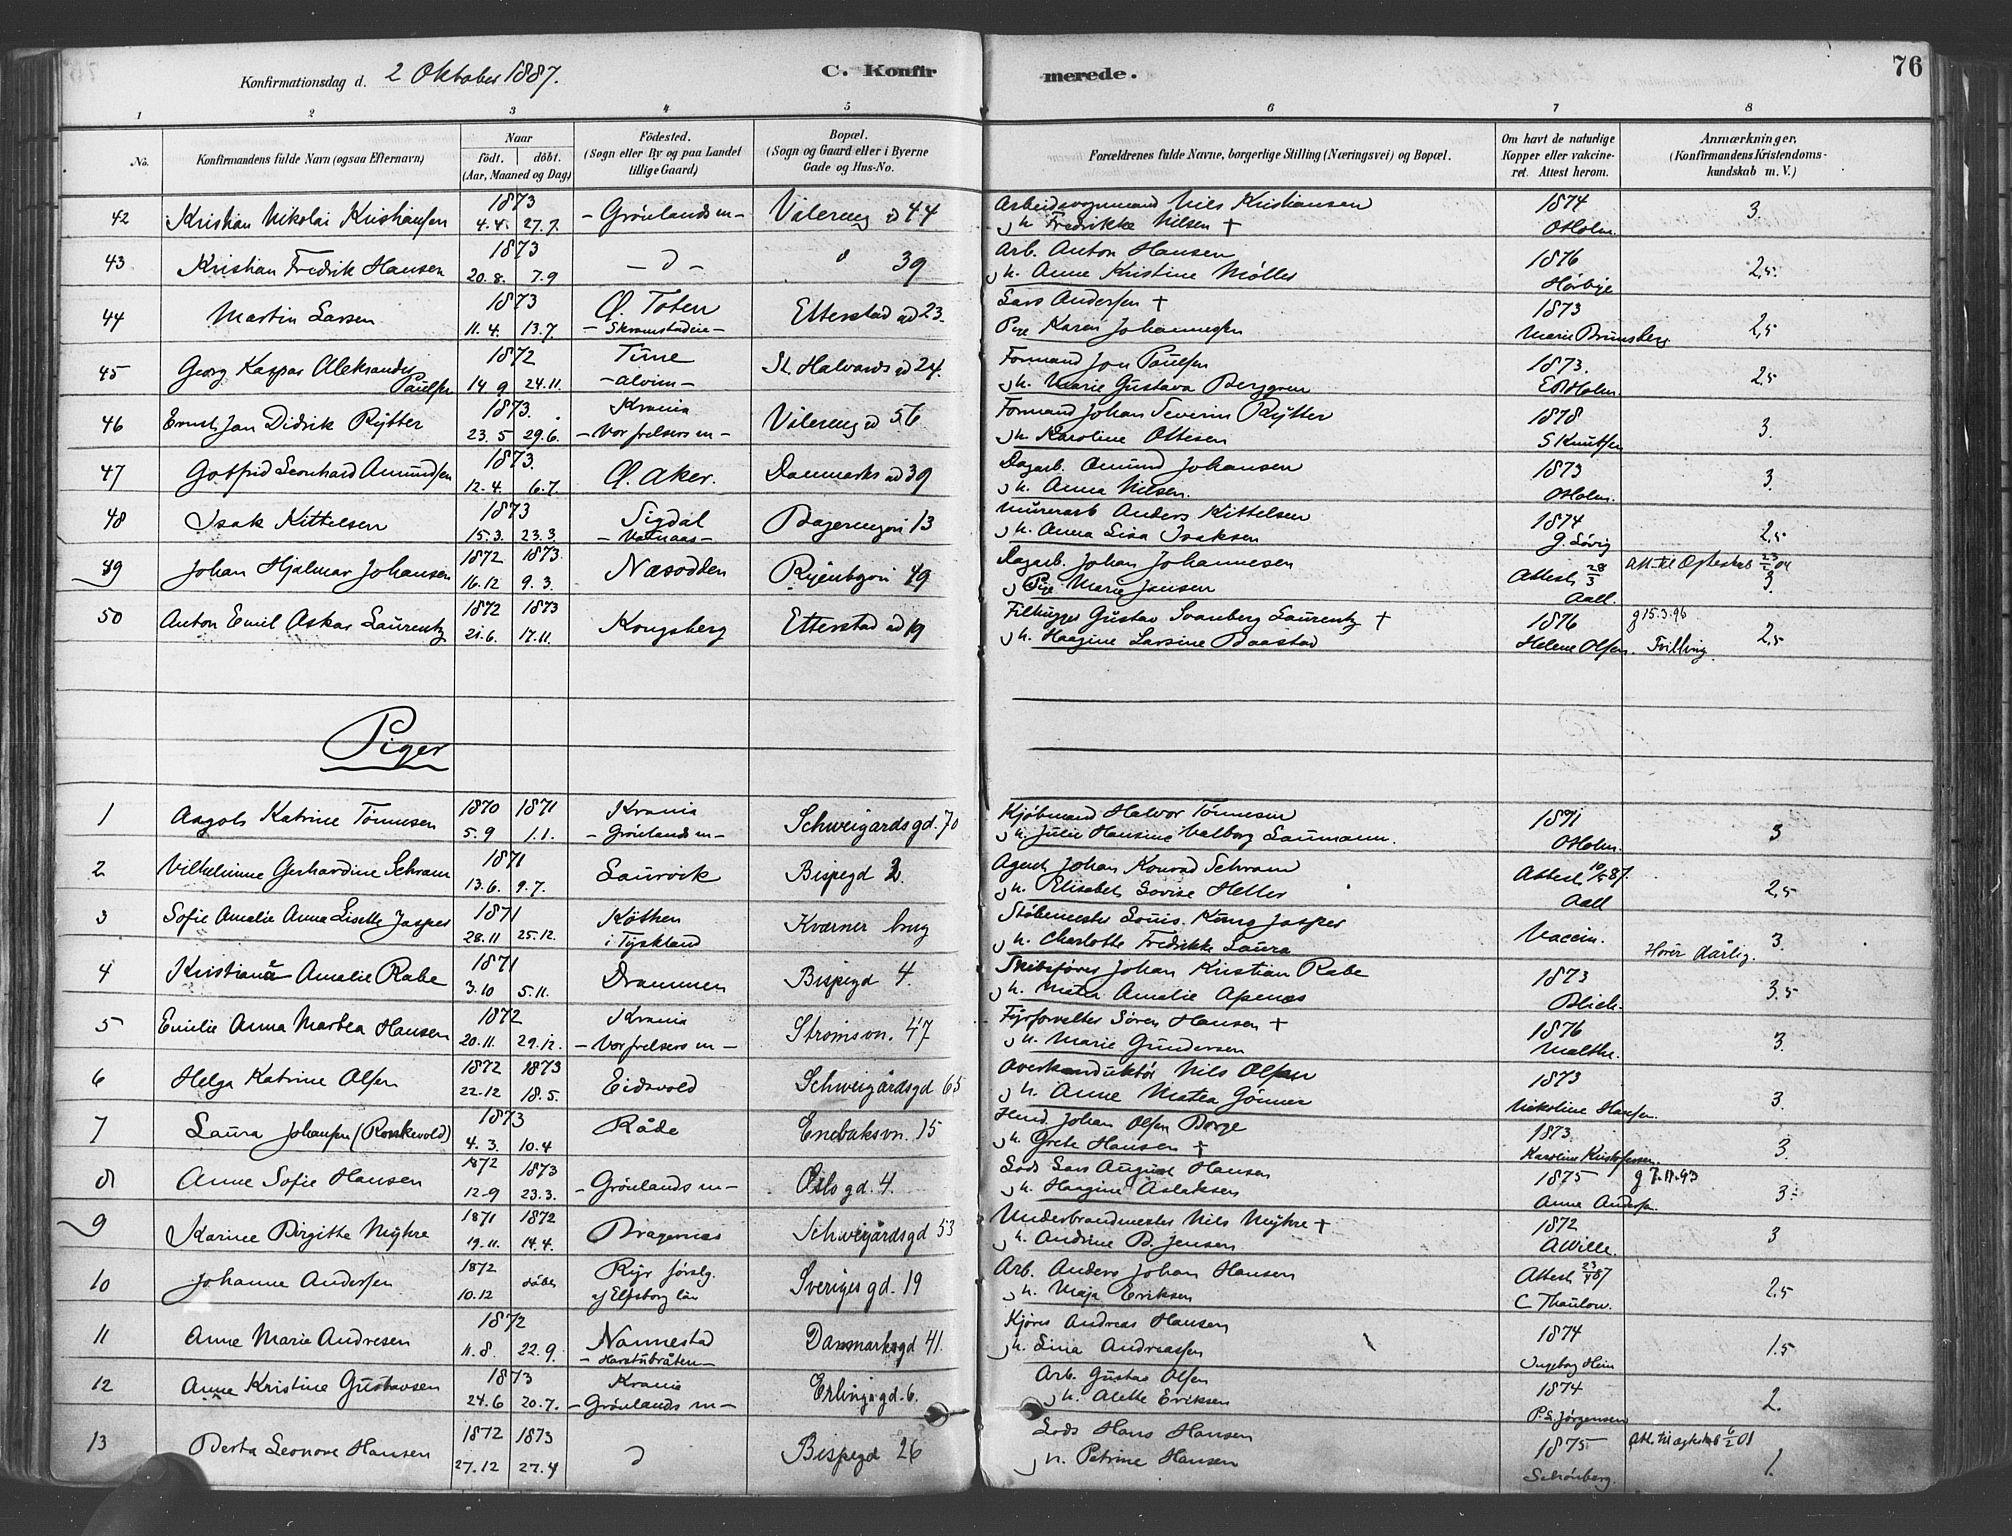 Konfirmationsdag d. 2 Oktober 1887. C. Konfirmerede. 76
1 2 3 4 5 6 7 8
No. Konfirmandens fulde Navn (ogsaa Efternavn) Naar födt. döbt. (Aar, Maaned og Dag) Födested. (Sogn eller By og paa Landet tillige Gaard) Bopæl. (Sogn og Gaard eller i Byerne Gade og Hus-No. Forældrenes fulde Navne, borgerlige Stilling (Næringsvei) og Bopæl. Om havt de naturlige Kopper eller vakcineret. Attest herom. Anmærkninger, (Konfirmandens Kristendomskundskab m. V.)
42 Kristian Nikolai Kristiansen 1873 4.4. 27.7. - Grönlands m - Vålereng 44 Arbeidsvognmand Nils Kristiansen h. Fredrikke Nilsen † 1874 OHolm. 3.
43 Kristian Fredrik Hansen 1873 20.8. 7.9 - d - 39 Arb. Anton Hansen h. Anne Kristine Møller 1876 Hörbye 2,5.
44 Martin Larsen 1873 11.4. 13.7. Ö. Toten - Skramstadeie - Etterstad 23. Lars Andersen † Pige Karen Johannesen 1873 Marie Brunsberg 2,5
45 Georg Kaspar Aleksander Paulsen 1872 14.9. 24.11. Tune - Alvim - St Halvards 24. Formand Jon Paulsen h. Marie Gustava Berggren 1873. 2,5
46 Ernst Jan Didrik Rÿtter 1873. 23.5 29.6. Krania - Vor frelsers m - Vålereng 56 Formand Johan Severin Rÿtter h. Karoline Ottesen 1878 S Knutsen 3.
47 Gotfred Leonhard Amundsen 1873. 12.4. 6.7. Ö. Aker. Danmarks 39 Dagarb. Amund Johansen h. Anna Nilsen. 1873 OHolm. 3.
48 Isak Kittelsen 1873 15.3. 23.3. Sigdal - Vatnaas - 13 Murerarb Anders Kittelsen h. Anna Lisa Isaksen 1874 G. Lövig 2,5
49 Johan Hjalmar Johansen 1872 1873. 16.12 9.3. Næsodden 49 Dagarb. Johan Johannesen Pige Marie Jansen Attest 28/3 Aall. Att. til 23/2 04 3.
50 Anton Emil Askar Laurentz 1872 1873 21.6. 17.11. Kongsberg Etterstad 19 Filhugger Gustav Svanberg Laurentz † h. Haagine Larsine Baastad 1876 Helene Olsen. g 15.3.96 Tvilling. 2,5
Piger
1 Aagot Katrine Tönnesen 1870 1871 5.9 1.1. Krania - Grönlands m - Schweigårdsgd. 70 Kjöbmand Halvor Tönnesen h. Julie Hansine Valborg Laumann. 1871 OHolm. 3
2 Vilhelmine Gerhardine Schram 1871 13.6. 9.7. Laurvik Bispegd 2. Agent Johan Konrad Schram h. Elisabet Lovise Heller Attest 10/5 87. Aall 2,5
3 Sofie Amalie Anna Lisette Jasper 1871 28.11 25.12. Köthen i Tÿskland Kværner brug Stöbemester Louis Jasper h. Charlotte Fredrikke Laura Vaccin. Hörer dårlig. 3.
4 Kristiana Amalie Rabe 1871 3.10 5.11. Drammen Bispegd 4. Skibsförer Johan Kristian Rabe h. Mater Amalie Apenæs 1873 Blich 3,5
5 Emilie Anna Martea Hansen 1872 20.11. 29.12. Krania - Vor frelsers m - Strömsvn. 47 Fyrforvalter Sören Hansen † h. Marie Gundersen 1876 Malthe. 3.
6 Helga Katrine Olsen 1872 1873 22.12 18.5. Eidsvold Schweigårdsgd 65 Overkonduktör Nils Olsen h. Anne Matea Jönner 1873 Nikoline Hansen. 3.
7 Laura Johansen (Roskevold) 1873 4.3. 10.4 Råde Enebaksvn. 15 Johan Olsen Borge h. Grete Hansen † 1873. Karoline Kristofersen. 3.
8 Anne Sofie Hansen 1872 1873 12.9 23.3. - Grönlands m - Oslogd. 4. Lods Lars August Hansen h. Haagine Aslaksen 1875 Anne Andersen g 7.11.93 3.
9 Karine Birgitte Mÿhre 1871 1872 19.11. 14.4. Bragernæs Schweigårdsgd 53 Underbrandmester Nils Mÿhre † h. Andrine B. Jensen 1872 AWille. 3
10 Johanne Andersen 1872 10.12 döbt Rÿr af Elfsborg län Sverigesgd. 19 Arb. Anders Johan Hansen h. Maja Eriksen Attest 23/4 87 C Thaulow. 2,5
11 Anne Marie Andresen 1872 11.8. 22.9. Nannestad - Haratubråten - Danmarksgd 41. Kjörer Andreas Hansen h. Lina Andreassen 1874 Ingeborg Heim 1.5
12 Anne Kristine Gustavsen 1873 24.6 20.7. Krania - Grönlands m - Erlingsgd. 6. Arb. Gustav Olsen h. Alette Eriksen 1874 P.S. Jørgensen 2.
13 Berta Leonore Hansen 1872 1873 27.12 27.4 d Bispegd 26 Lods Hans Hansen h. Petrine Hansen 1875 Schönberg. Att. til ægteskab 6/2 01 1.